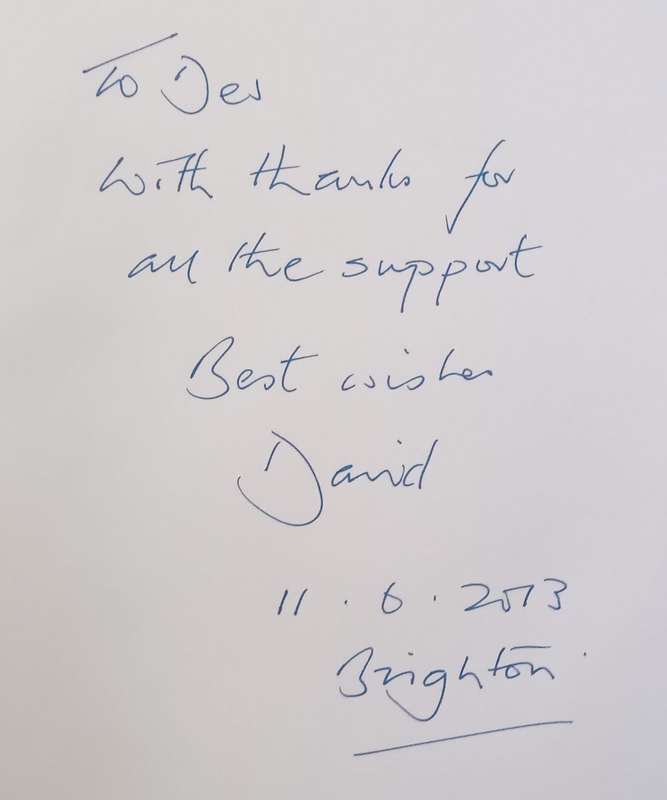 To Des
with thanks for
all the support
Best wishes
David
11.6.2013
Brighton.